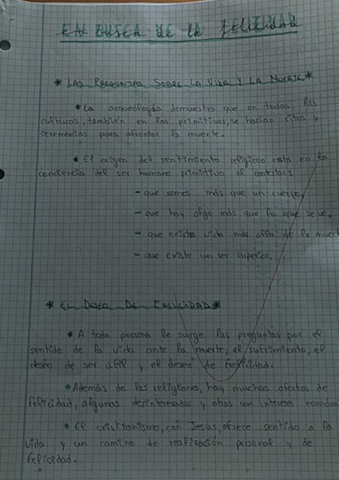 EN BUSCA DE LA FELICIDAD
* LAS PREGUNTAS SOBRE LA VIDA Y LA MUERTE *
* La arqueología demuestra que en todas las
culturas, también en las primitivas, se hacían ritos y
ceremonias para afrontar la muerte.
* El origen del sentimiento religioso está en la
conciencia del ser humano primitivo al contestar:
- que somos más que un cuerpo,
- que hay algo más que lo que se ve,
- que exista vida más allá de la muert
- que existe un ser superior.
* EL DESEO DE FELICIDAD *
* A toda persona le surge las preguntas por el
sentido de la vida ante la muerte, el sufrimiento, el
deseo de ser útil y el deseo de felicidad.
* Además de las religiones, hay muchas ofertas de
felicidad, algunas desinteresadas y otras con interés económ
* El cristianismo, con Jesús, ofrece sentido a la
vida y un camino de realización personal y de
felicidad.